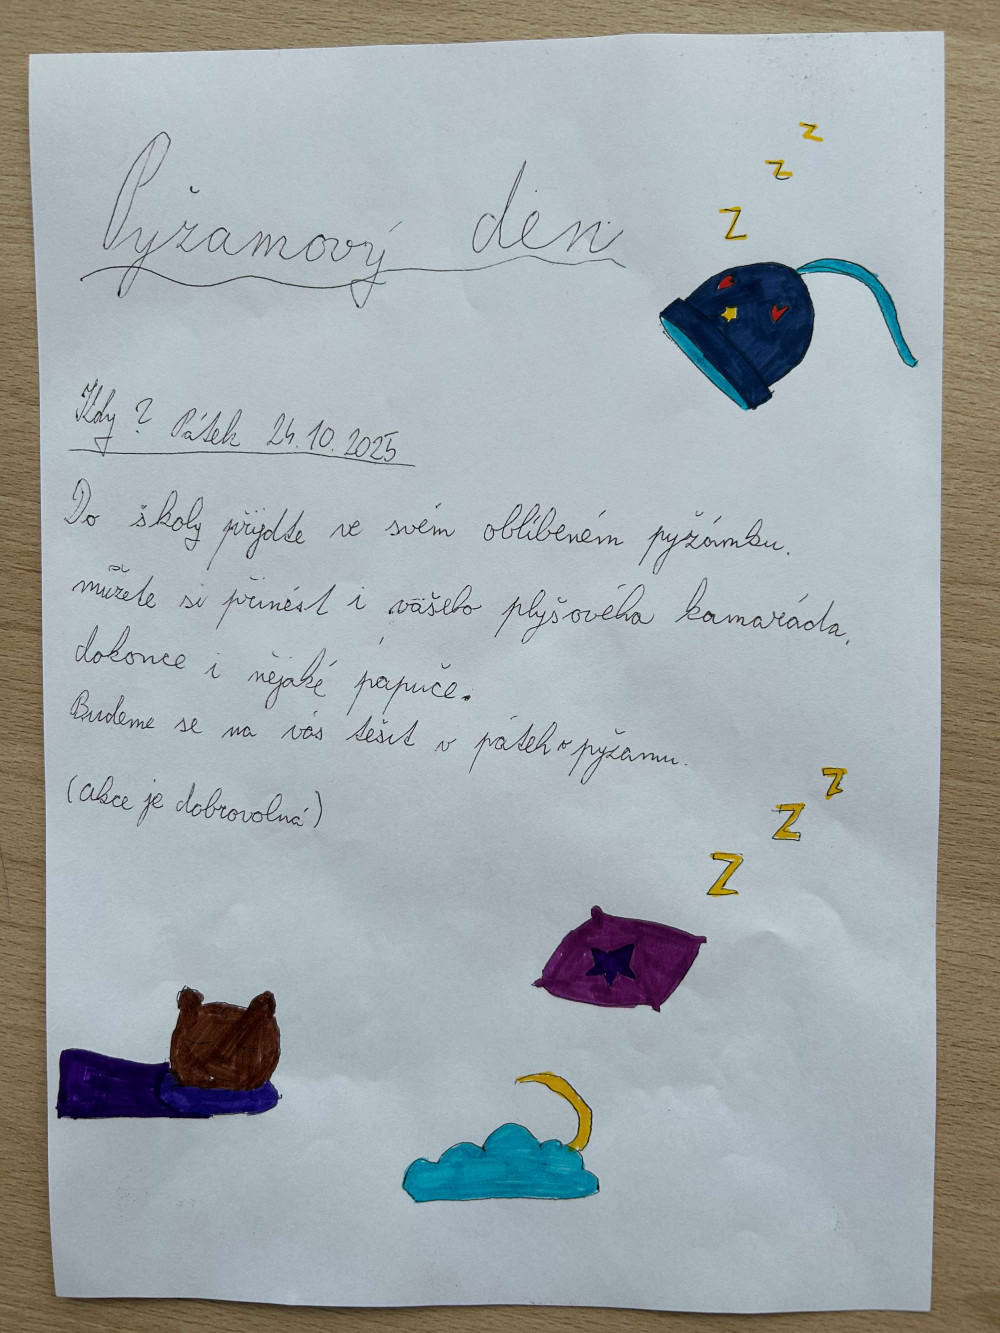 z
z
z
Pyžamový den
Kdy? Pátek 24.10.2025
Do školy přijdte ve svém oblíbeném pyžámku.
můžete si přinést i vašeho plyšového kamaráda,
dokonce i nějaké papuče.
Budeme se na vás těšit v pátek v pyžamu.
(akce je dobrovolná)
z
z
z